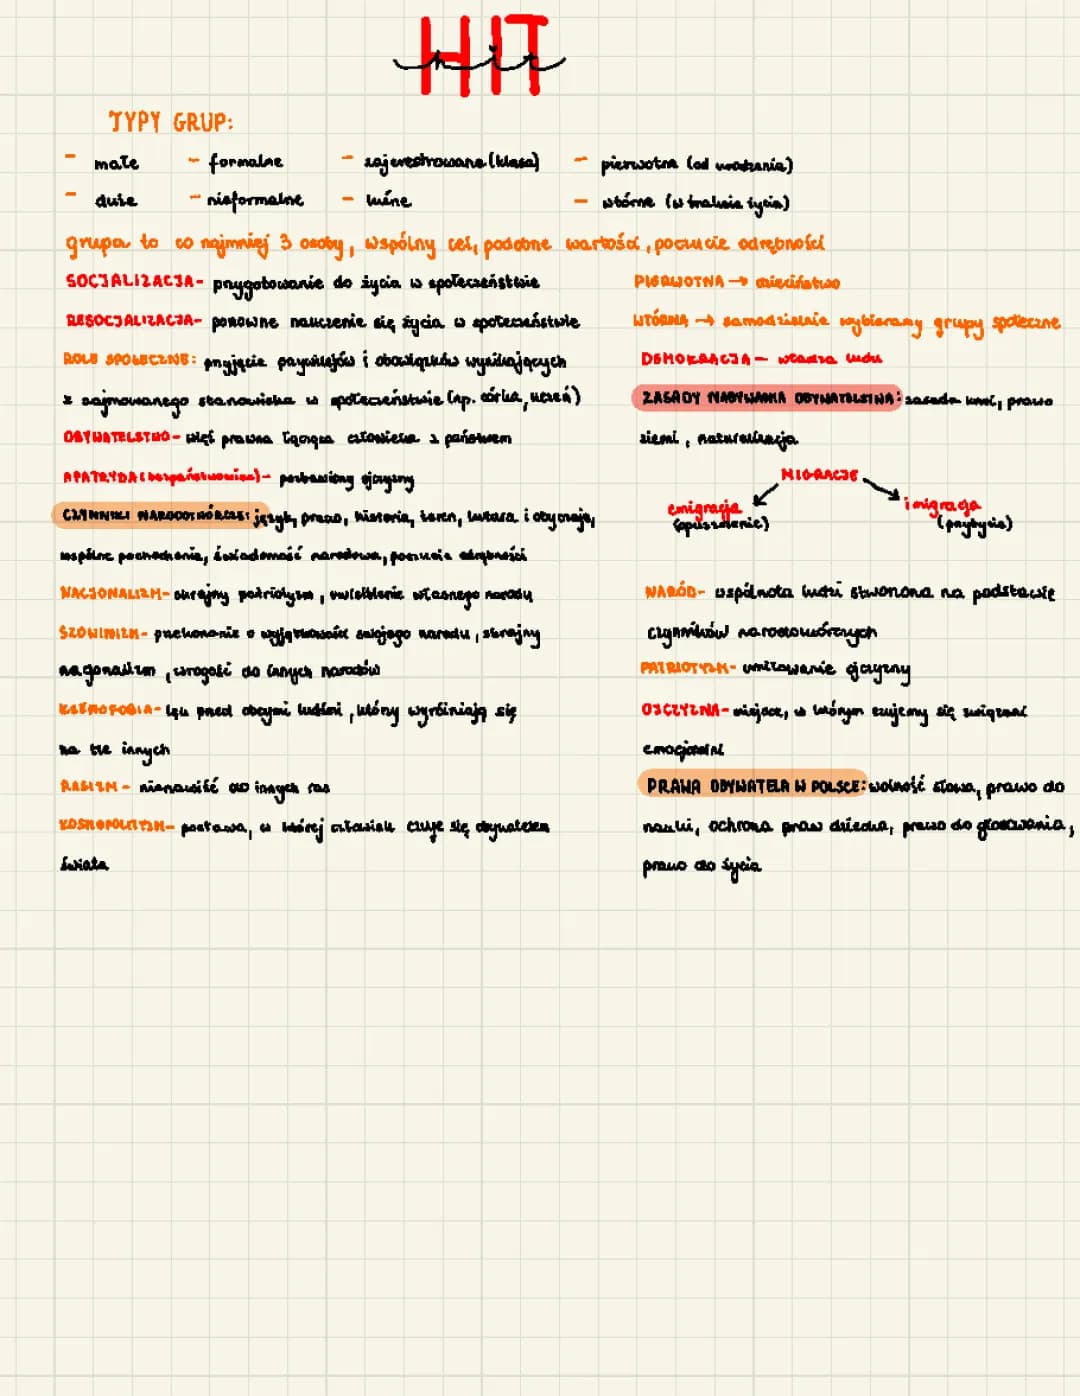 HIT
hit
TYPY GRUP:
- małe - formalne - zarejestrowane (klasa) - pierwotna (od urodzenia)
- duże - nieformalne - luźne - wtórne (w trakcie życia)
grupa to co najmniej 3 osoby, wspólny cel, podobne wartości, poczucie odrębności
SOCJALIZACJA- przygotowanie do życia w społeczeństwie
RESOCJALIZACJA- ponowne nauczenie się życia w społeczeństwie
ROLE SPOŁECZNE: przyjęcie przywilejów i obowiązków wynikających
z zajmowanego stanowiska w społeczeństwie (np. córka, uczeń)
OBYWATELSTWO- więź prawna łącząca człowieka z państwem
APATRYDA (bezpaństwowiec)- pozbawiony ojczyzny
CZYNNIKI NARODOTWÓRCZE: język, prawo, historia, teren, kultura i obyczaje,
wspólne pochodzenie, świadomość narodowa, poczucie odrębności
NACJONALIZM- skrajny patriotyzm, uwielbienie własnego narodu
SZOWINIZM- przekonanie o wyjątkowości swojego narodu, skrajny
nacjonalizm, wrogość do innych narodów
KSENOFOBIA- lęk przed obcymi ludźmi, którzy wyróżniają się
na tle innych
RASIZM- nienawiść do innych ras
KOSMOPOLITYZM- postawa, w której człowiek czuje się obywatelem
świata
PIERWOTNA → dzieciństwo
WTÓRNA → samodzielnie wybieramy grupy społeczne
DEMOKRACJA- władza ludu
ZASADY NABYWANIA OBYWATELSTWA: zasada krwi, prawo
ziemi, naturalizacja
MIGRACJE
emigracja imigracja
(opuszczenie) (przybycie)
NARÓD- wspólnota ludzi stworzona na podstawie
czynników narodotwórczych
PATRIOTYZM- umiłowanie ojczyzny
OJCZYZNA- miejsce, w którym czujemy się związani
emocjonalnie
PRAWA OBYWATELA W POLSCE: wolność słowa, prawo do
nauki, ochrona praw dziecka, prawo do głosowania,
prawo do życia